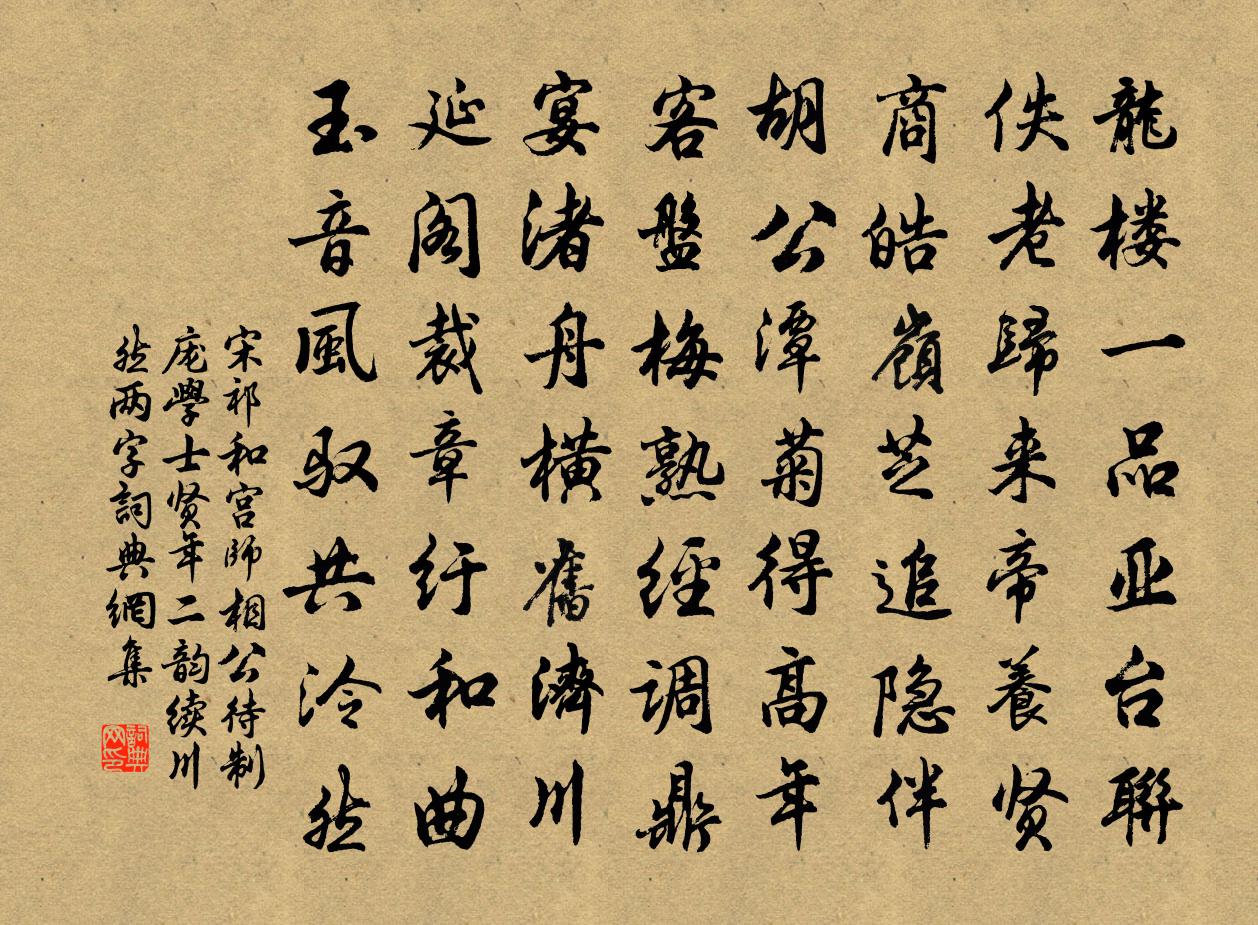 龍楼一品亚台聯
佚老歸来帝養贤
商皓嶺芝追隐伴
胡公潭菊得高年
客盤梅熟經调鼎
宴渚舟横舊濟川
延阁裁章纡和曲
玉音風驭共泠然
宋祁和宫師相公待制
庞學士贤年二韵续川
然两字詞典網集
詞典网印